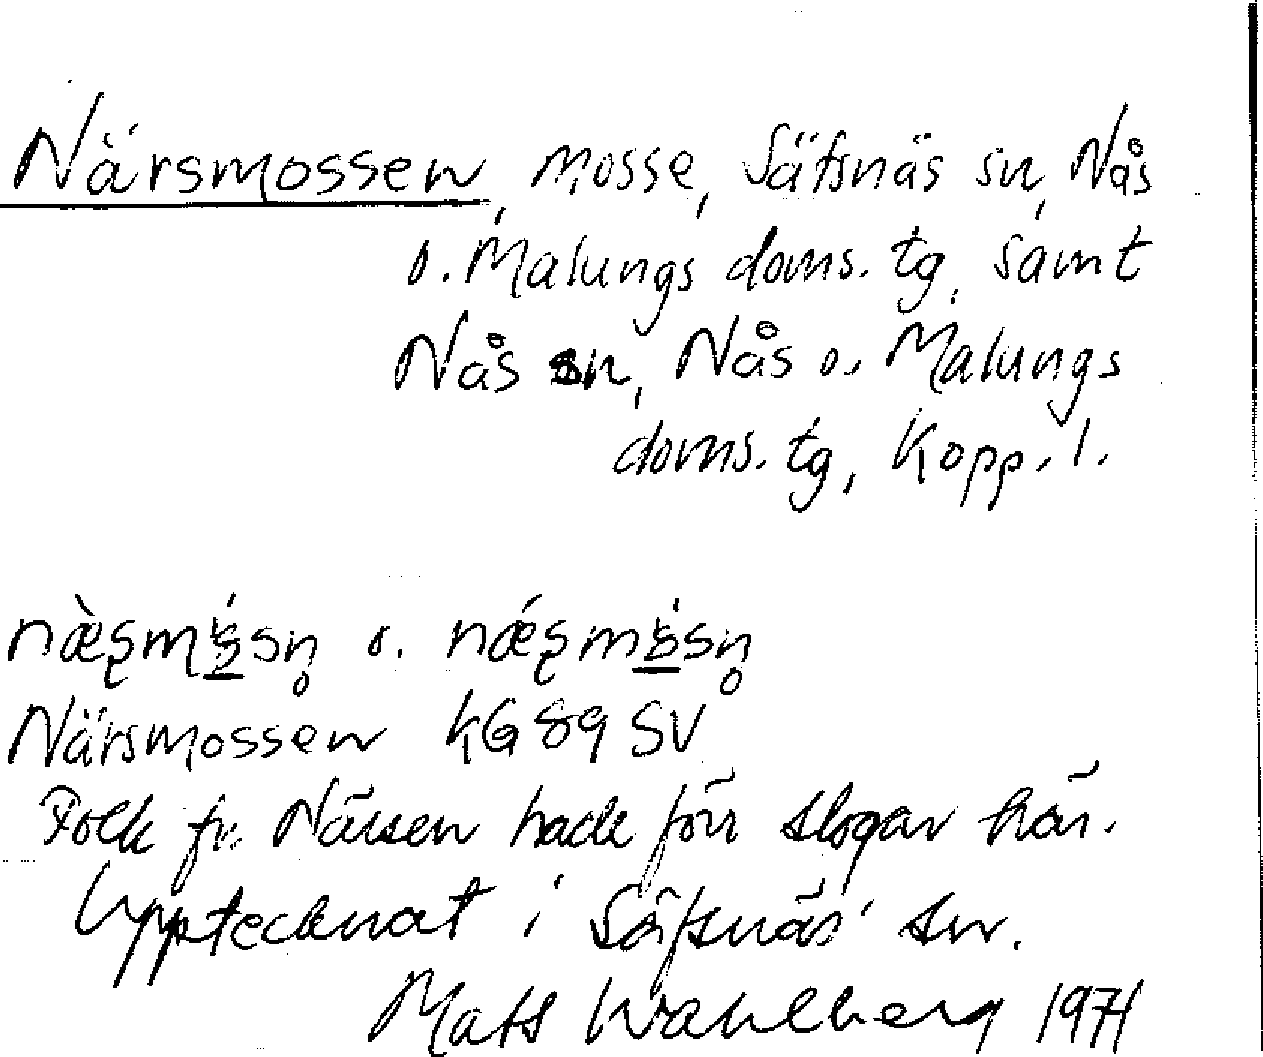 Närsmossen, mosse, Säfsnäs sn, Nås
o. Malungs doms. tg, samt
Nås sn, Nås o. Malungs
doms. tg, Kopp. l.
o.
Närsmossen KG 89 SV
Folk fr. Närsen hade förr slogar här.
Upptecknat i Säfsnäs sn.
Mats Wahlberg 1971